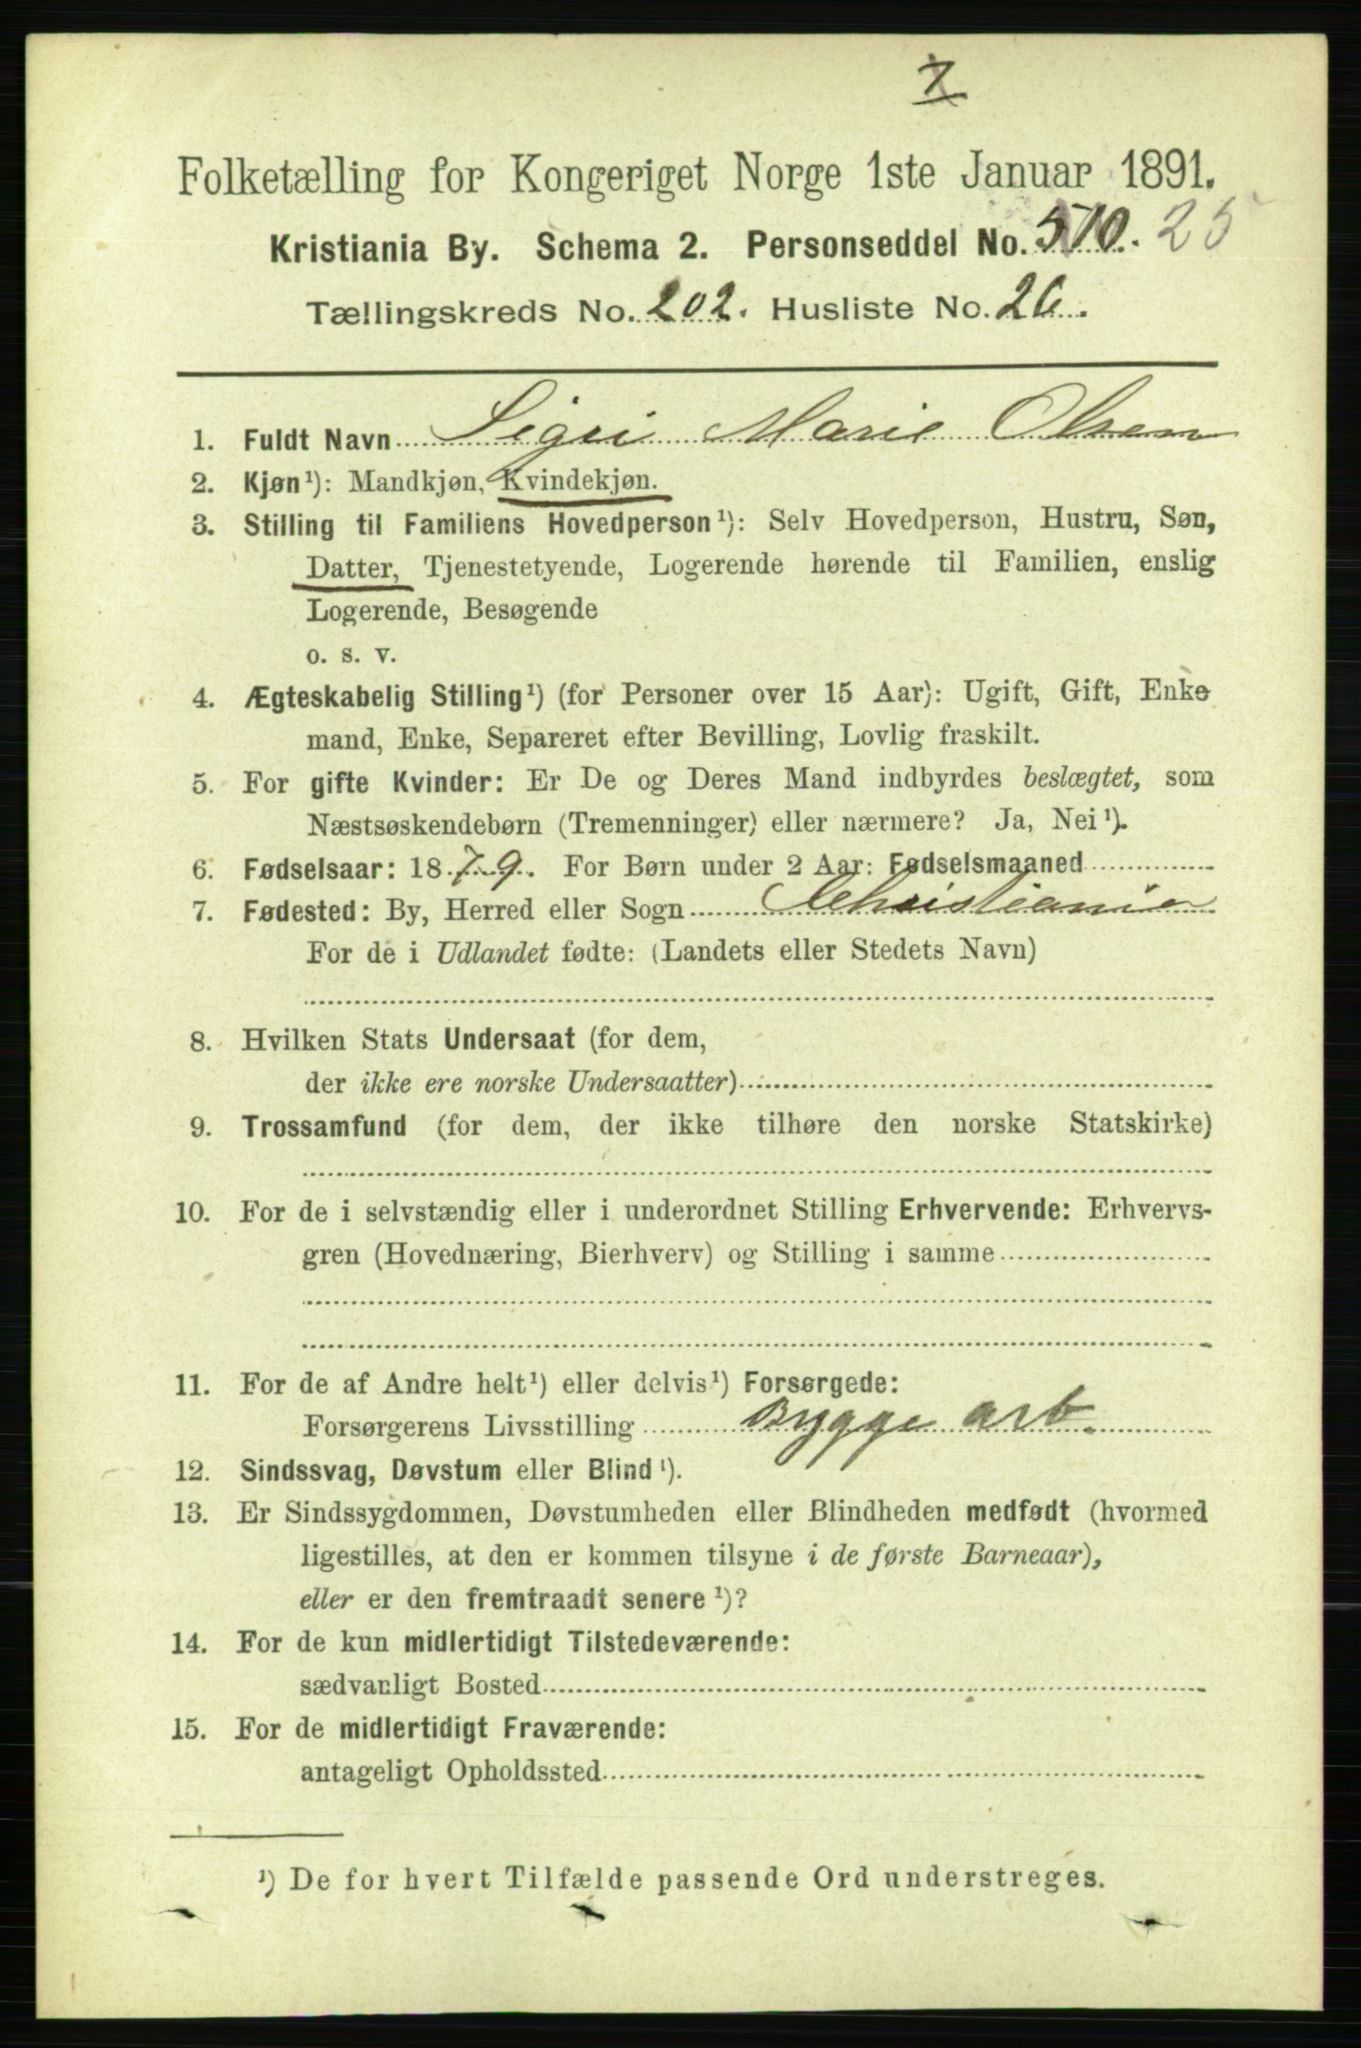 Folketælling for Kongeriget Norge 1ste Januar 1891.
Kristiania By. Schema 2. Personseddel No. 25
Tællingskreds No. 202. Husliste No. 26.
1. Fuldt Navn Sigri Marie Olsen
2. Kjøn¹): Mandkjøn, Kvindekjøn.
3. Stilling til Familiens Hovedperson¹): Selv Hovedperson, Hustru, Søn,
Datter, Tjenestetyende, Logerende hørende til Familien, enslig
Logerende, Besøgende
o. s. v.
4. Ægteskabelig Stilling¹) (for Personer over 15 Aar): Ugift, Gift, Enke
mand, Enke, Separeret efter Bevilling, Lovlig fraskilt.
5. For gifte Kvinder: Er De og Deres Mand indbyrdes beslægtet, som
Næstsøskendebørn (Tremenninger) eller nærmere? Ja, Nei¹).
6. Fødselsaar: 1879. For Børn under 2 Aar: Fødselsmaaned
7. Fødested: By, Herred eller Sogn Christiania
For de i Udlandet fødte: (Landets eller Stedets Navn)
8. Hvilken Stats Undersaat (for dem,
der ikke ere norske Undersaatter)
9. Trossamfund (for dem, der ikke tilhøre den norske Statskirke)
10. For de i selvstændig eller i underordnet Stilling Erhvervende: Erhvervs-
gren (Hovednæring, Bierhverv) og Stilling i samme
11. For de af Andre helt¹) eller delvis¹) Forsørgede:
Forsørgerens Livsstilling Bygge arb.
12. Sindssvag, Døvstum eller Blind¹).
13. Er Sindssygdommen, Døvstumheden eller Blindheden medfødt (hvormed
ligestilles, at den er kommen tilsyne i de første Barneaar),
eller er den fremtraadt senere¹)?
14. For de kun midlertidigt Tilstedeværende:
sædvanligt Bosted
15. For de midlertidigt Fraværende:
antageligt Opholdssted
¹) De for hvert Tilfælde passende Ord understreges.